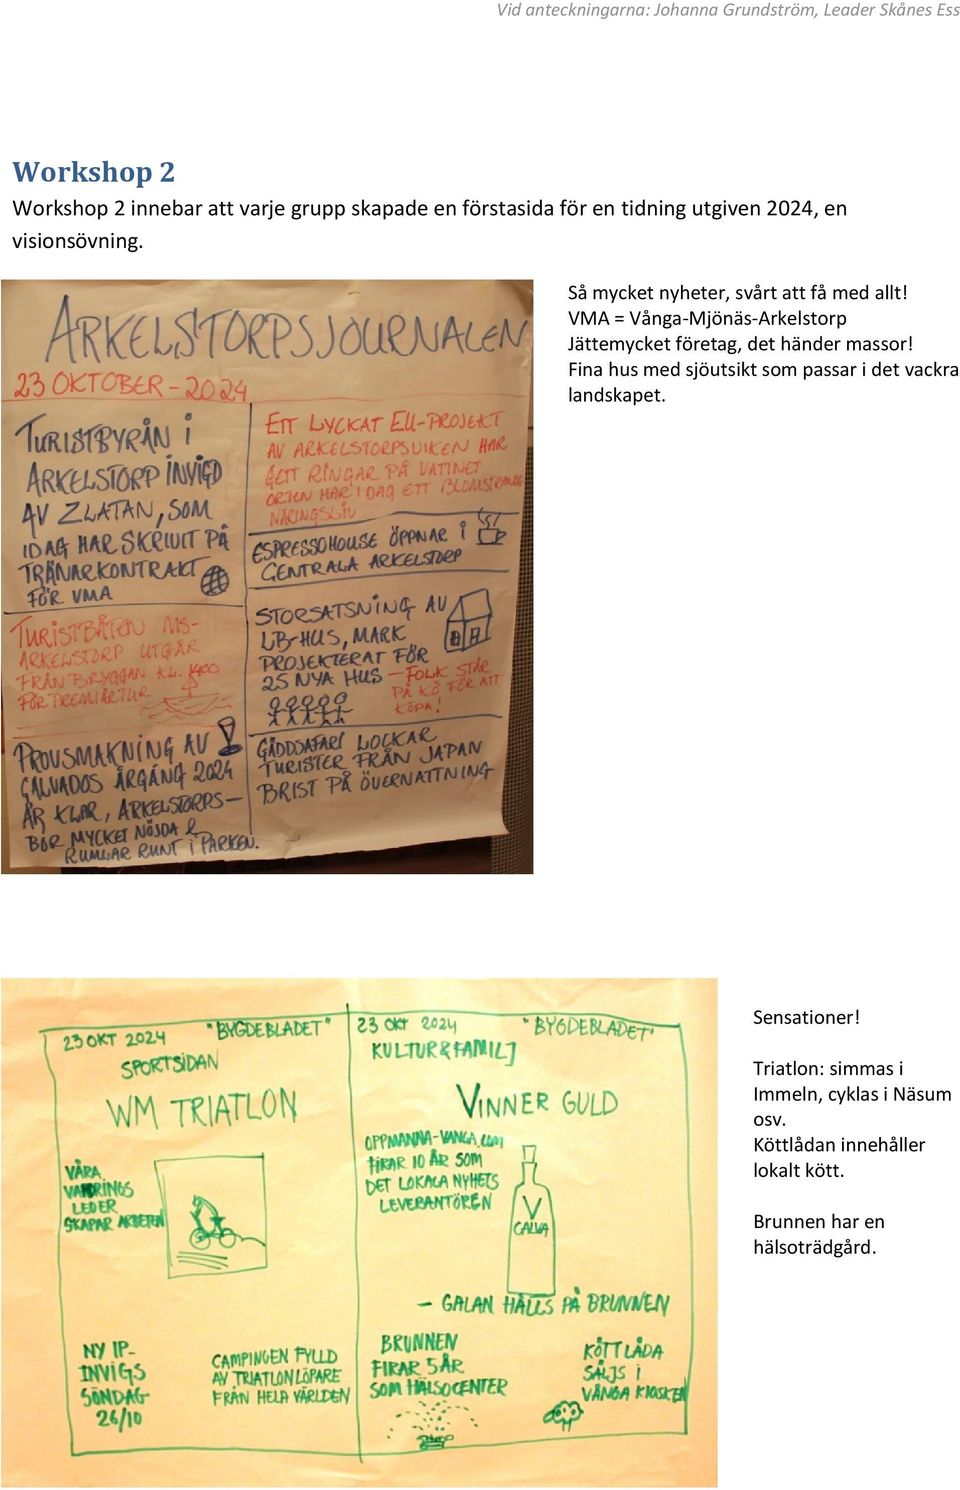 Vid anteckningarna: Johanna Grundström, Leader Skånes Ess
Workshop 2
Workshop 2 innebar att varje grupp skapade en förstasida för en tidning utgiven 2024, en
visionsövning.
Så mycket nyheter, svårt att få med allt!
VMA = Vånga-Mjönäs-Arkelstorp
Jättemycket företag, det händer massor!
Fina hus med sjöutsikt som passar i det vackra
landskapet.
ARKELSTORPSJOURNALEN
23 OKTOBER - 2024
TURISTBYRÅN I
ARKELSTORP INVIGD
AV ZLATAN, SOM
IDAG HAR SKRIVIT PÅ
TRÄNARKONTRAKT
FÖR VMA
TURISTBÅTEN MS-
ARKELSTORP UTGÅR
FRÅN BRYGGAN KL. 1400
FÖR PREMIÄRTUR
PROVSMAKNING AV
CALVADOS ÅRGÅNG 2024
ÄR KLAR, ARKELSTORPS-
BOR MYCKET NÖJDA &
RUMLAR RUNT I PARKEN.
ETT LYCKAT EU-PROJEKT
AV ARKELSTORPSVIKEN HAR
GETT RINGAR PÅ VATTNET
ORTEN HAR IDAG ETT BLOMSTRANDE
NÄRINGSLIV
ESPRESSOHOUSE ÖPPNAR I
CENTRALA ARKELSTORP
STORSATSNING AV
LB-HUS, MARK
PROJEKTERAT FÖR
25 NYA HUS - FOLK STÅR
PÅ KÖ FÖR ATT
KÖPA!
GÄDDSAFARI LOCKAR
TURISTER FRÅN JAPAN
BRIST PÅ ÖVERNATTNING
23 OKT 2024 "BYGDEBLADET"
SPORTSIDAN
WM TRIATLON
VÅRA
VANDRINGS
LEDER
SKAPAR ARBETEN
NY IP-
INVIGS
SÖNDAG
26/10
CAMPINGEN FYLLD
AV TRIATLONLÖPARE
FRÅN HELA VÄRLDEN
23 OKT 2024 "BYGDEBLADET"
KULTUR & FAMILJ
VINNER GULD
OPPMANNA-VANGA.COM
FIRAR 10 ÅR SOM
DET LOKALA NYHETS
LEVERANTÖREN
V
CALVA
- GALAN HÅLLS PÅ BRUNNEN
BRUNNEN
FIRAR 5 ÅR
SOM HÄLSOCENTER
KÖTTLÅDA
SÄLJS I
VÅNGA KIOSKEN
Sensationer!
Triatlon: simmas i
Immeln, cyklas i Näsum
osv.
Köttlådan innehåller
lokalt kött.
Brunnen har en
hälsoträdgård.